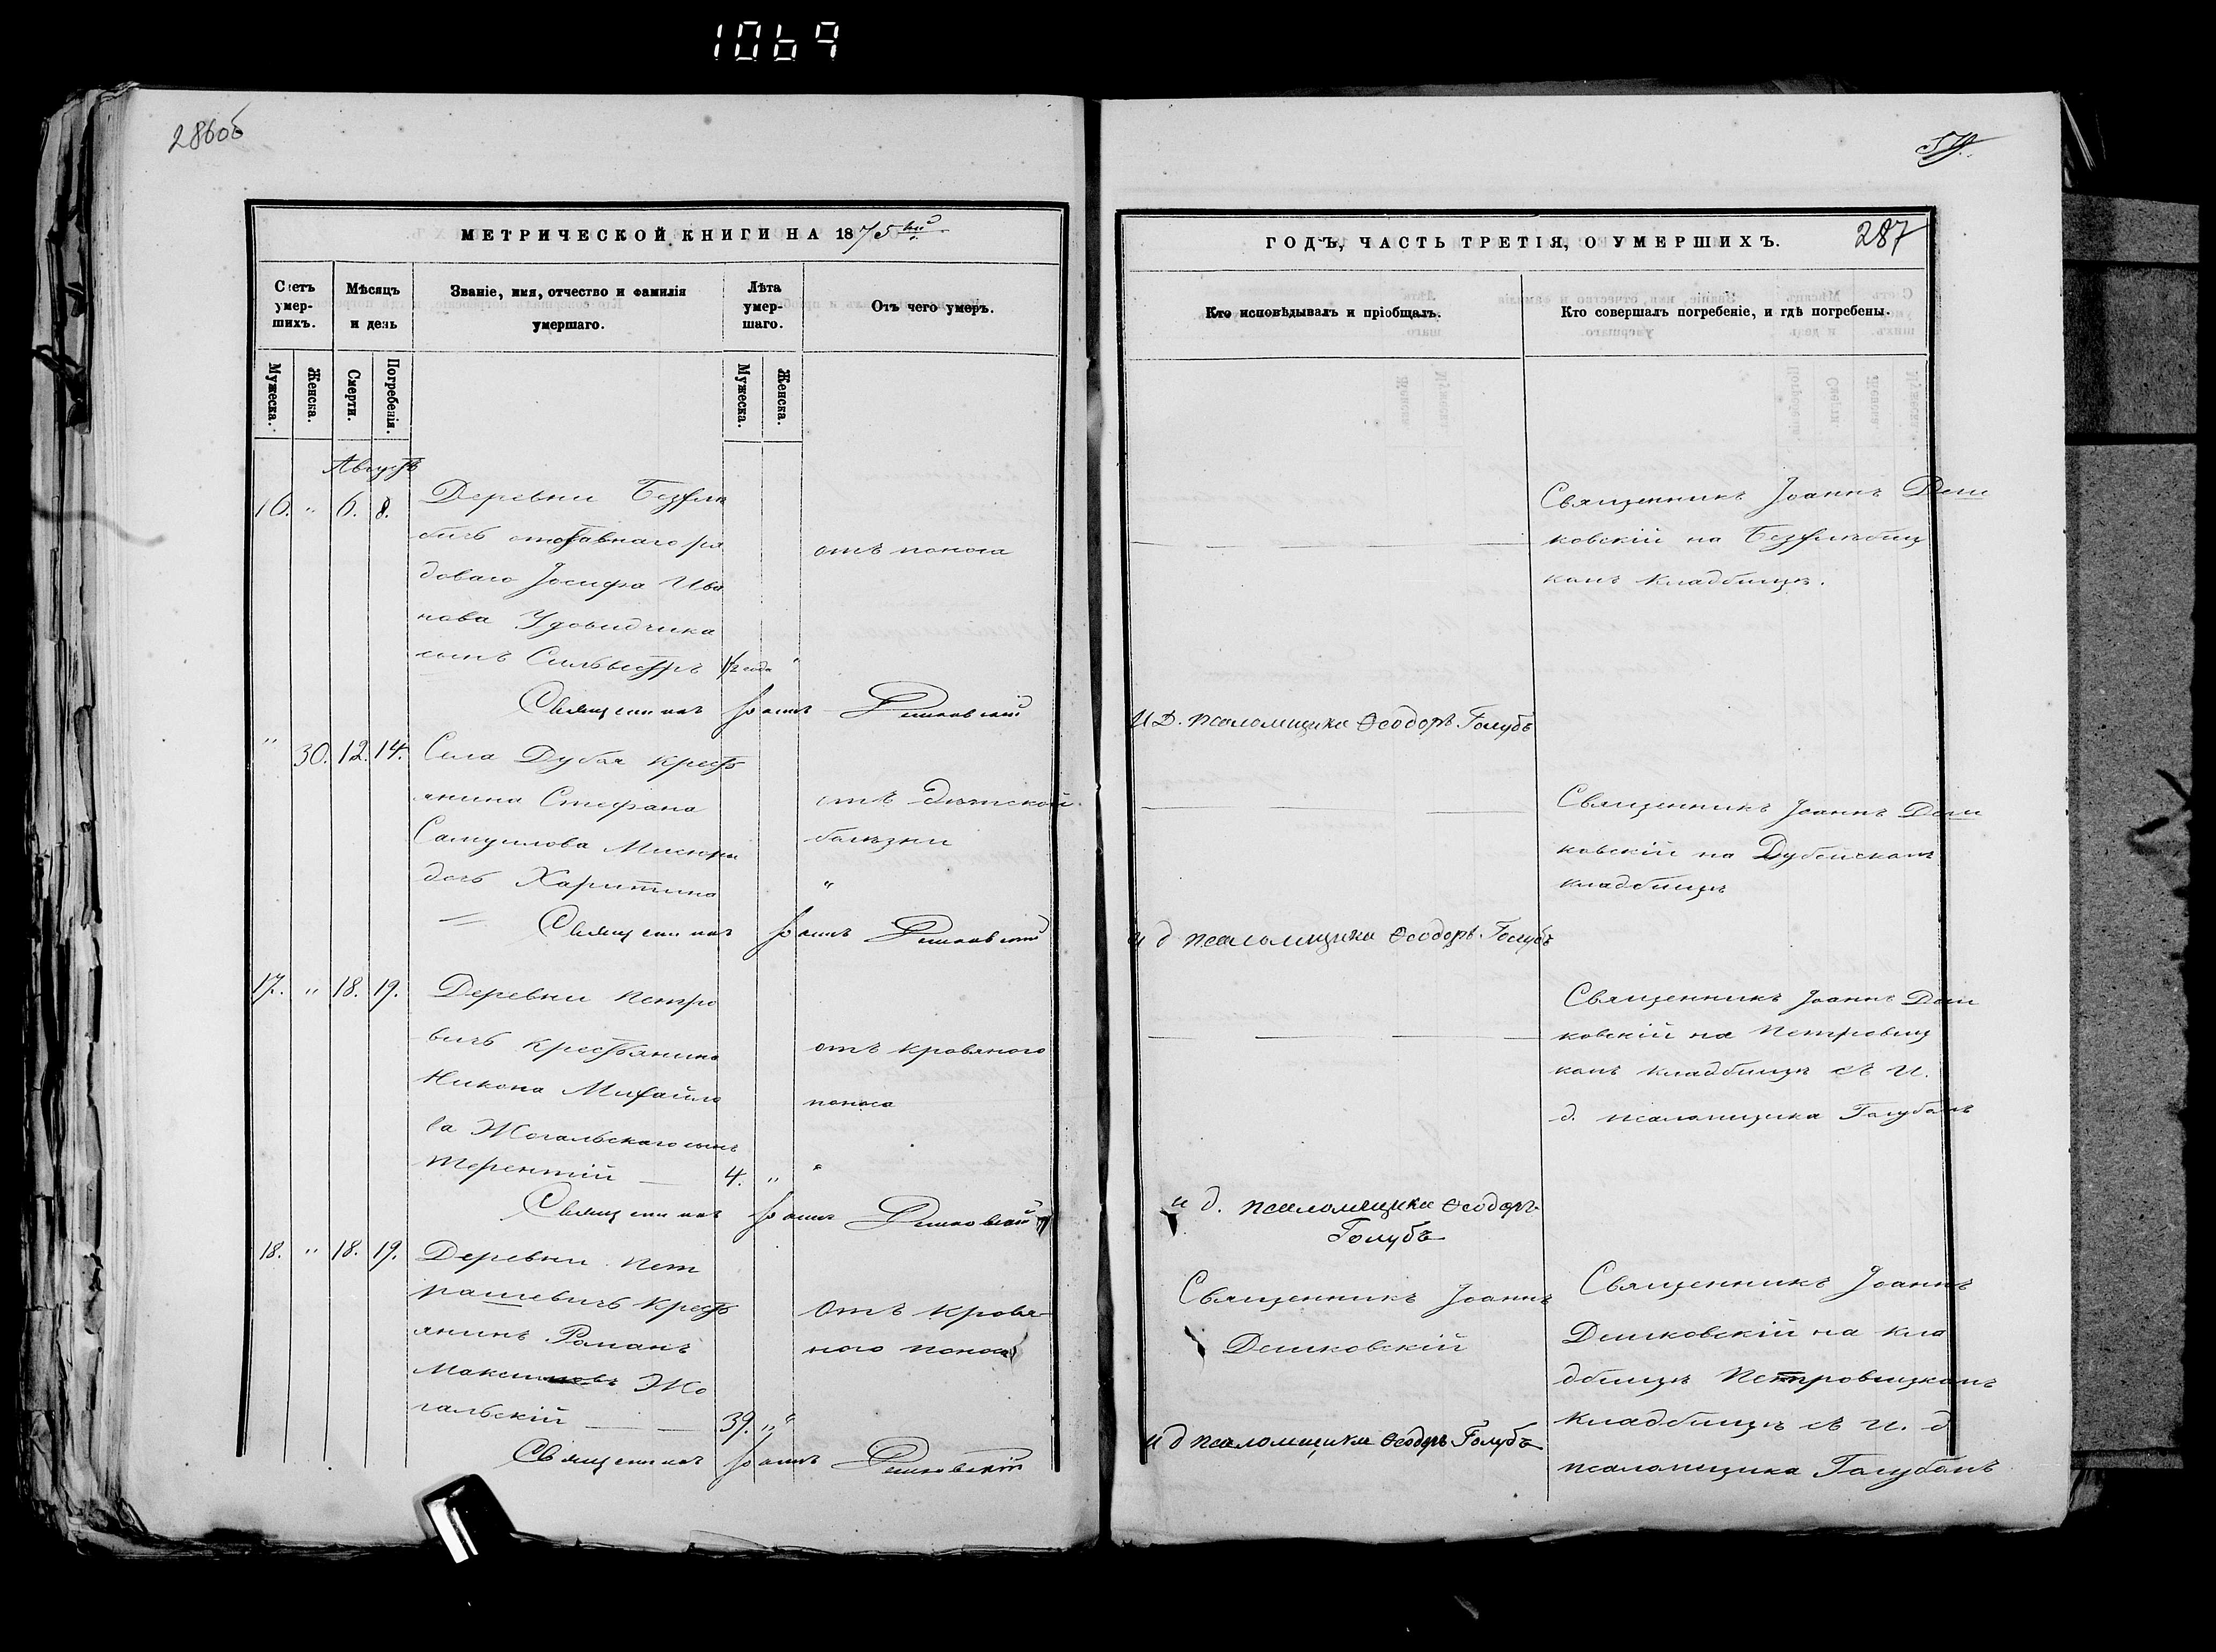 1069
286об
МЕТРИЧЕСКОЙ КНИГИ НА 1875ый
Счетъ умер-шихъ.
Мѣсяцъ и день
Званіе, имя, отчество и фамилія умершаго.
Лѣта умер-шаго.
Отъ чего умеръ.
Мужеска.
Женска.
Смерти.
Погребенія.
Мужеска.
Женска.
Августъ
16. " 6. 8. Деревни
отставнаго ря
доваго Іосифа Ива
нова Удовидчика
сынъ Сильвестръ 1½ года "
отъ поноса
Священникъ Іоаннъ Дешковскій
" 30. 12. 14. Села Дубоя крест
янина Стефана
Самуилова
дочь Харитина
отъ дѣтской
болѣзни
"
Священникъ Іоаннъ Дешковскій
17. " 18. 19. Деревни Петро
вичъ крестьянина
Никона Михайло
ва Жогальскаго сынъ
Терентій — 4. " "
отъ кроваваго
поноса
Священникъ Іоаннъ Дешковскій
18. " 18. 19. Деревни Пет
рашевичъ крест
янинъ Романъ
Максимовъ Жо
гальскій — 39. " "
отъ кровя
ного поноса
Священникъ Іоаннъ Дешковскій
ГОДЪ, ЧАСТЬ ТРЕТІЯ, О УМЕРШИХЪ.
287
Кто исповѣдывалъ и пріобщалъ.
Кто совершалъ погребеніе, и гдѣ погребены.
Священникъ Іоаннъ Деш
ковскій на
комъ кладбищѣ.
И Д. псаломщика Ѳеодоръ Голубъ
Священникъ Іоаннъ Деш
ковскій на Дубойскомъ
кладбищѣ
и д псаломщика Ѳеодоръ Голубъ
Священникъ Іоаннъ Деш
ковскій на Петровиц
комъ кладбищѣ съ И.
д. псаломщика Голубомъ
и д. псаломщика Ѳеодоръ
Голубъ
Священникъ Іоаннъ
Дешковскій
Священникъ Іоаннъ
Дешковскій на кла
дбищѣ Петровицкомъ
кладбищѣ съ И. д
псаломщика Голубомъ
и д псаломщика Ѳеодоръ Голубъ